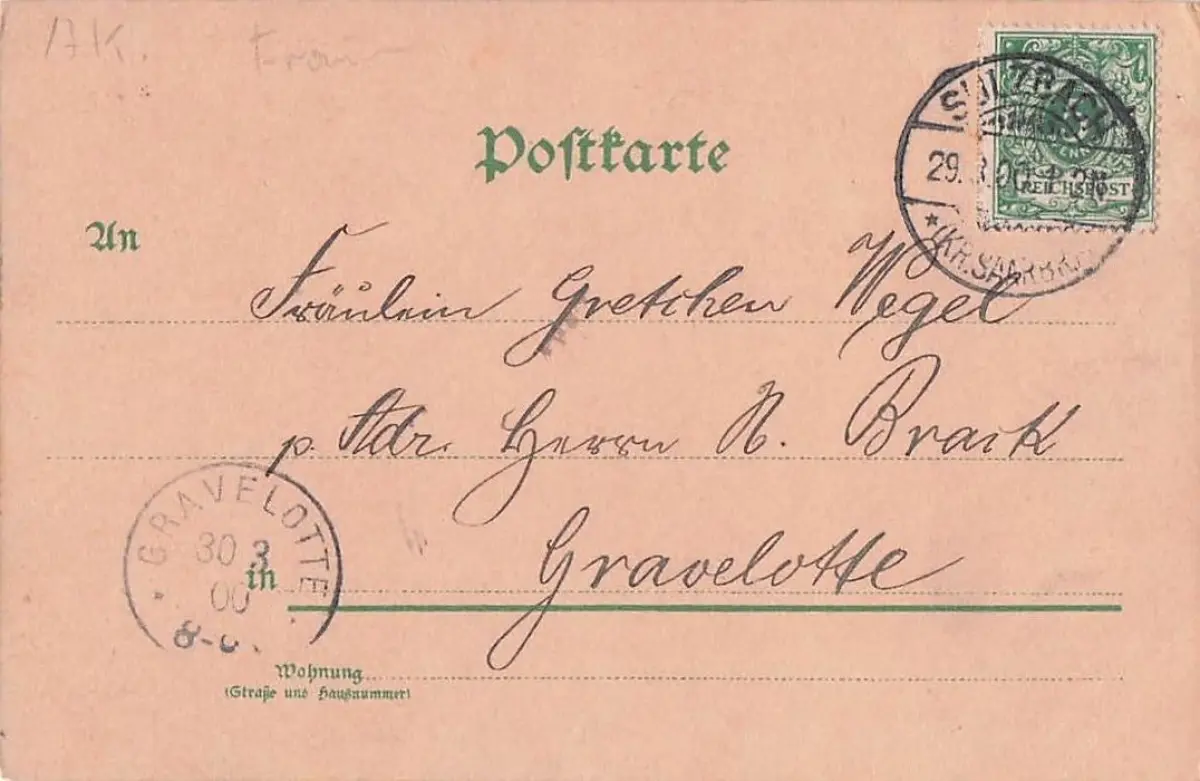 17K.
SULZBACH
29.3.00
REICHSPOST
*(KR. SAARBR.)
Postkarte
An
Fräulein Gretchen Wegel
p. Adr. Herrn N. Brack
GRAVELOTTE
30 3
00
in Gravelotte
Wohnung
(Straße und Hausnummer)